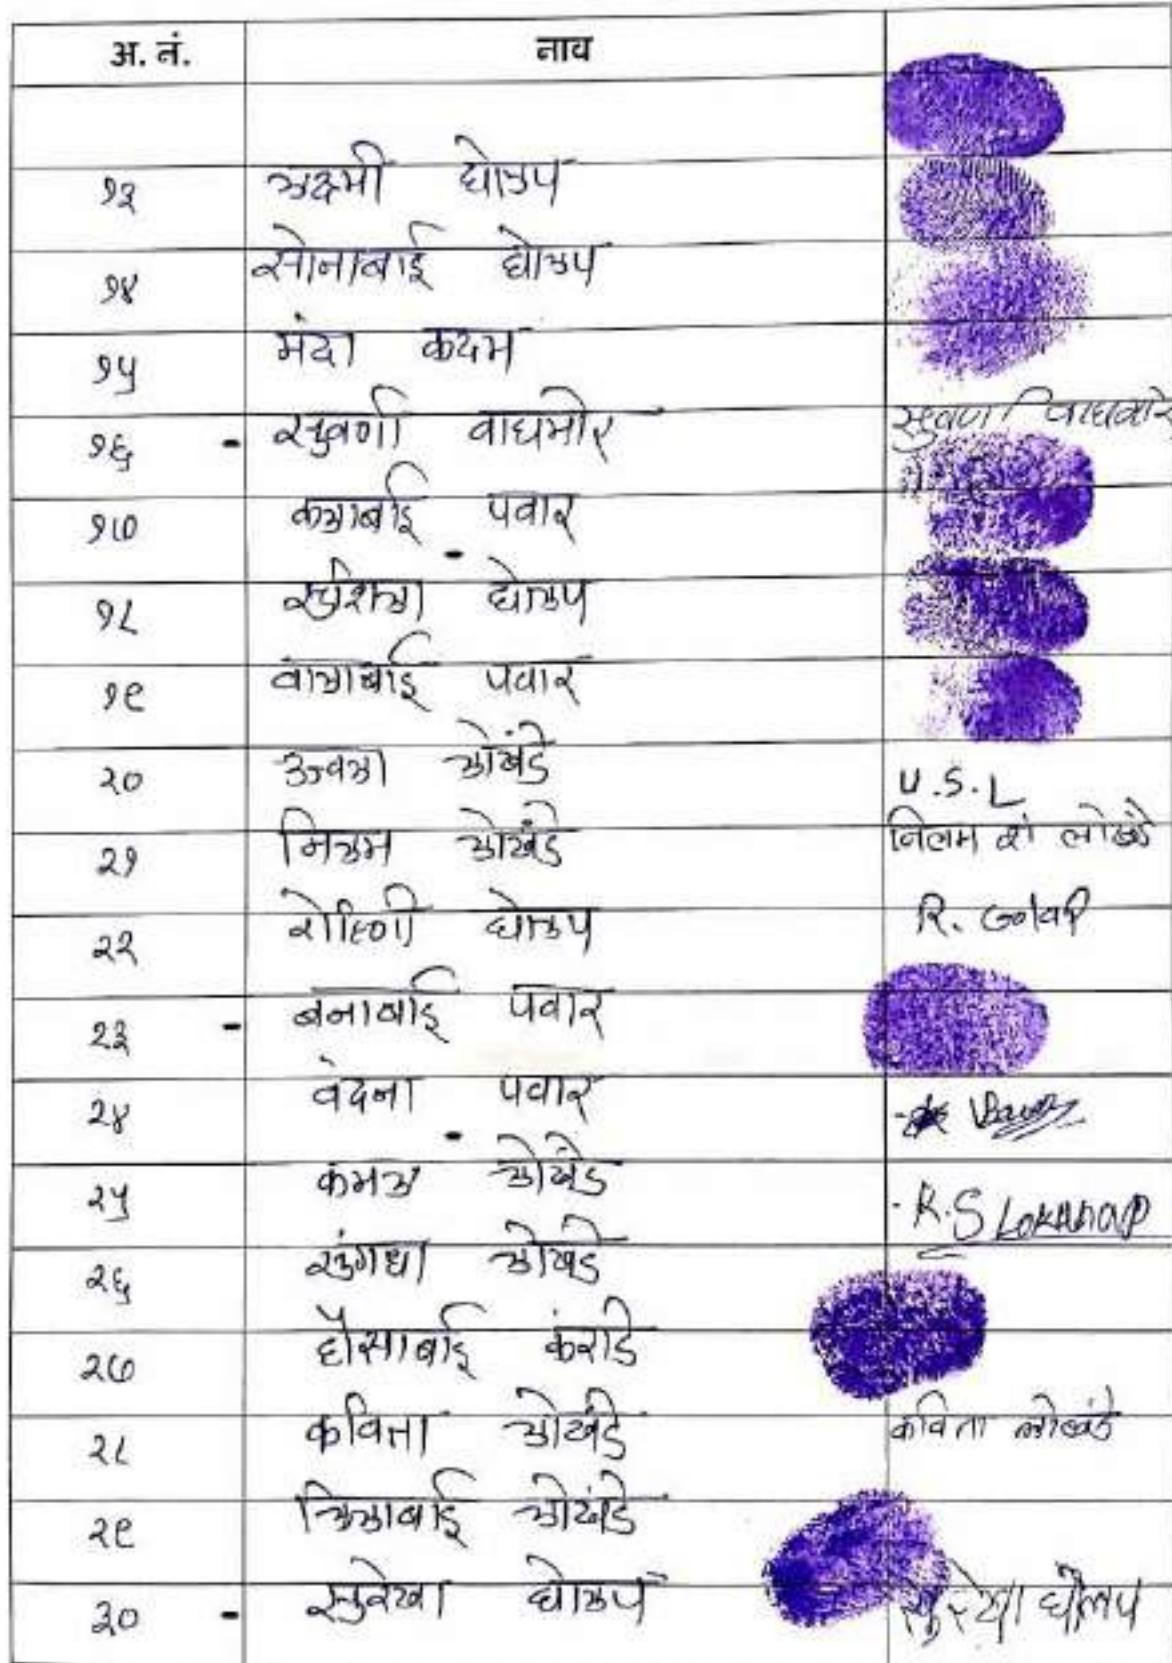 अ. नं. नाव
१३ लक्ष्मी घोलप
१४ सोनाबाई घोलप
१५ मंदा कदम
१६ - सुवर्णा वाघमोरे सुवर्णा वाघमारे
१७ कलाबाई पवार
१८ सुशिला घोलप
१९ वालाबाई पवार
२० उज्वला लोखंडे U.S.L
२१ निलम लोखंडे निलम शं लोखंडे
२२ रोहिणी घोलप R. Golap
२३ - बनाबाई पवार
२४ वंदना पवार
२५ कमल लोखंडे K.S Lokhande
२६ सुंगधा लोखंडे
२७ हौसाबाई करांडे
२८ कविता लोखंडे कविता लोखंडे
२९ लिलाबाई लोखंडे
३० - सुरेखा घोलप सुरेखा घोलप